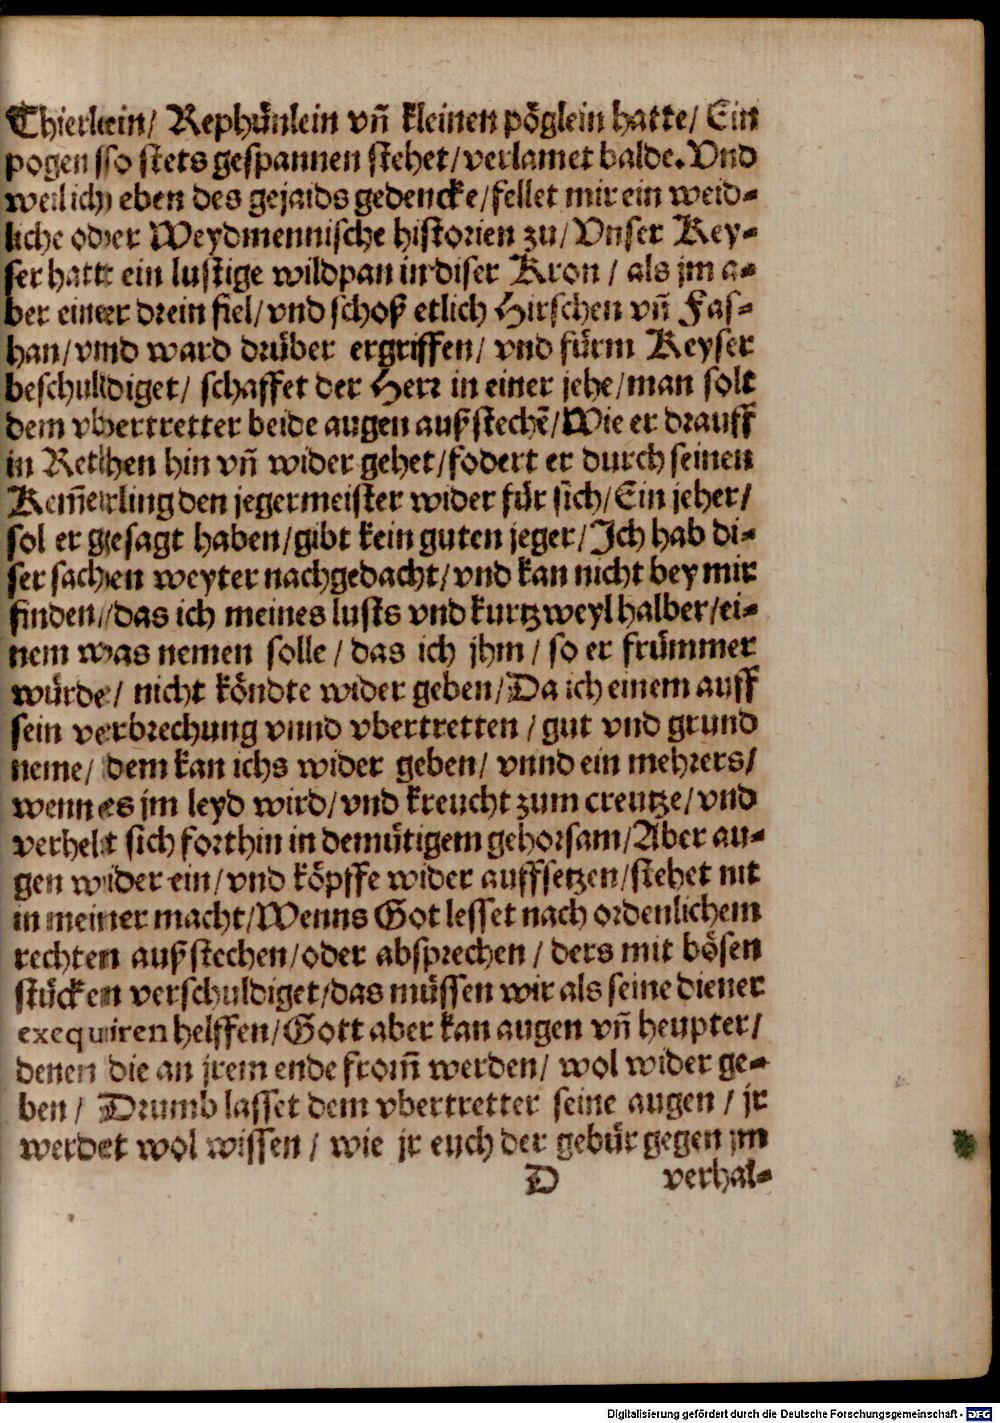 Thierlein/ Rephünlein vñ kleinen pöglein hatte/ Ein
pogen so stets gespannen stehet/verlamet balde. Vnd
weil ich eben des gejaids gedencke/fellet mir ein weid-
liche oder Weydmennische historien zu/ Vnser Key-
ser hatte ein lustige wildpan in diser Kron / als jm a-
ber einer drein fiel/vnd schoß etlich Hirschen vñ Fas-
han/vnd ward drüber ergriffen/ vnd fürm Keyser
beschuldiget/ schaffet der Herr in einer jehe/man solt
dem vbertretter beide augen auß stechē/Wie er drauff
in Rethen hin vñ wider gehet/fodert er durch seinen
Kem̃erling den jegermeister wider für sich/Ein jeher/
sol er gesagt haben/gibt kein guten jeger/Ich hab di-
ser sachen weyter nachgedacht/vnd kan nicht bey mir
finden/das ich meines lusts vnd kurtzweyl halber/ei-
nem was nemen solle / das ich jhm / so er frümmer
würde/ nicht köndte wider geben/Da ich einem auff
sein verbrechung vnnd vbertretten / gut vnd grund
neme/ dem kan ichs wider geben/ vnnd ein mehrers/
wenn es jm leyd wird/vnd kreucht zum creutze/vnd
verhelt sich forthin in demütigem gehorsam/Aber au-
gen wider ein/vnd köpffe wider auffsetzen/stehet nit
in meiner macht/Wenns Got lesset nach ordenlichem
rechten auß stechen/oder absprechen / ders mit bösen
stücken verschuldiget/das müssen wir als seine diener
exequiren helffen/Gott aber kan augen vñ heupter/
denen die an jrem ende from̃ werden/ wol wider ge-
ben / Drumb lasset dem vbertretter seine augen / jr
werdet wol wissen / wie jr euch der gebür gegen jm
D verhal-
Digitalisierung gefördert durch die Deutsche Forschungsgemeinschaft - DFG